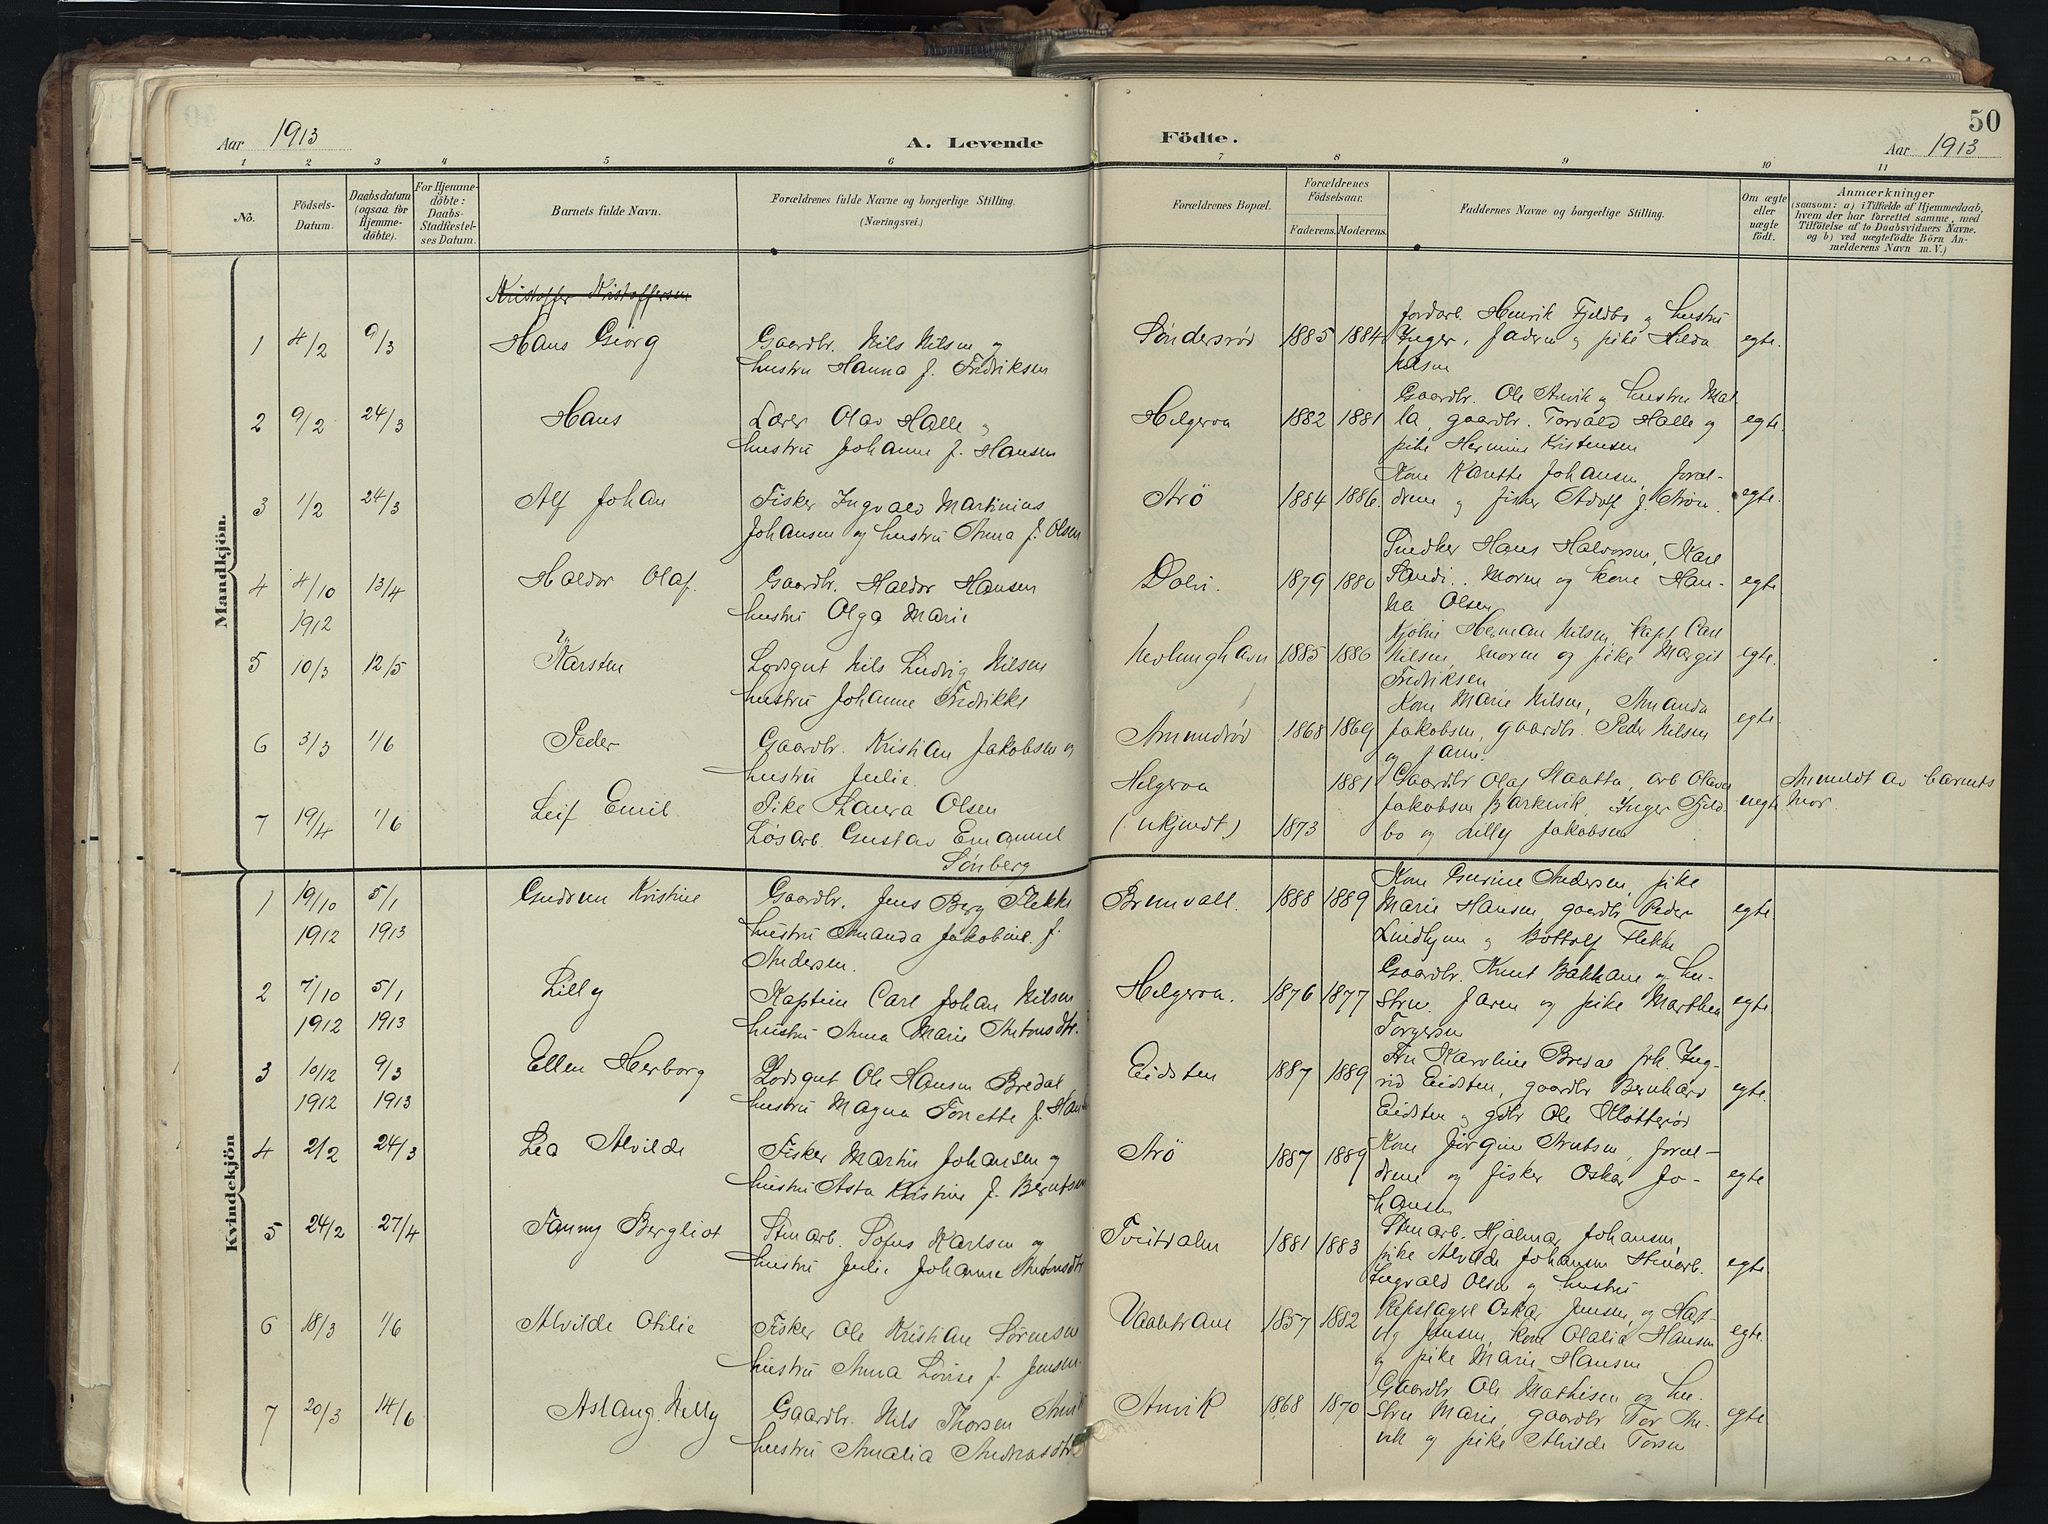 Aar 1913
A. Levende
Födte.
50
Aar 1913
1 2 3 4 5 6 7 8 9 10 11
Nö.
Födsels-
Datum.
Daabsdatum
(ogsaa for
Hjemme-
döbte).
For Hjemme-
döbte:
Daabs-
Stadfæstel-
ses Datum.
Barnets fulde Navn.
Forældrenes fulde Navne og borgerlige Stilling.
(Næringsvei.)
Forældrenes Bopæl.
Forældrenes
Födselsaar.
Faderens. Moderens.
Faddernes Navne og borgerlige Stilling.
Om ægte
eller
uægte
födt.
Anmærkninger
(saasom: a) i Tilfælde af Hjemmedaab,
hvem der har forrettet samme, med
Tilföielse af to Daabsvidners Navne,
og b) ved uægtefödte Börn An-
melderens Navn m. V.)
Mandkjön.
Kristoffer Kristoffersen
1 4/2 9/3 Hans Georg
Gaardbr. Nils Nilsen og
hustru Hanna f. Fredriksen
Söndersrød 1885 1884
Jordarb. Henrik Fjeldbo og hustru
Inger, faderen og pike Hilda
Nilsen
egte.
2 9/2 24/3 Hans
Lærer Olav Halle og
hustru Johanne f. Hansen
Helgeroa 1882 1881
Gaardbr. Ole Anvik og hustru Mat
la, gaardbr. Torvald Halle og
pike Hermine Kristensen
egte.
3 1/2 24/3 Alf Johan
Fisker Ingvald Martinius
Johansen og hustru Anna f. Olsen
Arö 1884 1886.
Kone Kanette Johansen, foræl-
drene og fisker Adolf J. Aröen.
egte.
4 4/10 1912 13/4 Haldor Olaf.
Gaardbr. Haldor Hansen
hustru Olga Marie
Dolvi. 1879 1880
Snedker Hans Halvorsen, Karl
Sandi.. Moren og kone Han-
na Olsen
egte
5 10/3 12/5 Karsten
Lodsgut Nils Ludvig Nilsen
hustru Johanne Fredrikke
Nevlunghavn 1885 1886
Herman Nilsen, kapt. Carl
Nilsen, moren og pike Margit
Fredriksen
egte.
6 3/3 1/6 Peder
Gaardbr. Kristian Jakobsen og
hustru Julie.
Amundrød 1868 1869
Kone Marie Nilsen, Amanda
Jakobsen, gaardbr. Peder Nilsen
og faren.
egte.
7 19/4 1/6 Leif Emil
Pike Laura Olsen
Løsarb. Gustav Emanuel
Sønberg
Helgeroa 1881
(ukjendt.) 1873
Gaardbr Olaf Haatta, arb Olava
Jakobsen Barkevik, Inger Fjeld
bo og Lilly Jakobsen
uegte
Anmeldt av barnets
mor.
Kvindekjön
1 19/10 1912 5/1 1913 Gudrun Kristine
Gaardbr. Jens Berg Flekke
hustru Amanda Jakobine f.
Andersen.
Brunvall. 1888 1889
Kone Gurine Andersen, pike
Marie Hansen, gaardbr Peder
Lindhjem og Bottolf Flekke
egte
2 7/10 1912 5/1 1913 Lilly
Kaptein Carl Johan Nilsen
hustru Anna Marie Antonsdtr.
Helgeroa. 1876 1877
Gaardbr. Knut Bakkane og hu-
stru. Faren og pike Marthea
Torgersen
egte.
3 10/12 1912 9/3 1913 Ellen Herborg
Lodsgut Ole Hansen Bredal
hustru Magna Tonette f. Han
Eidsten 1887 1889
Fru Karoline Bredal frk. Ing-
rid Eidsten, gaardbr Bernhard
Eidsten og gdbr Ole Klötterød
egte.
4 2/2 24/3 Lea Alvilde
Fisker Martin Johansen og
hustru Asta Kristine f. Berntsen
Arö 1887 1889
Kone Jörgine Arntsen, foræl-
drene og fisker Oskar Jo-
hansen
egte
5 24/2 27/4 Fanny Bergliot
Stenarb. Sofus Karlsen og
hustru Julie Johanne Antonsdtr
Tveitdalen 1881 1883
Stenarb. Hjalmar Johansen,
pike Alvilde Johansen Stenarb.
Ingvald Olsen og hustru
egte.
6 18/3 1/6 Alvilde Otilie
Fisker Ole Kristian Sørensen
hustru Anna Lovise f. Jensen.
1857 1882
Repslager Oskar Jensen, og Hat-
vig Jensen, kone Olalia Hansen
og pike Marie Hansen
egte.
7 20/3 14/6 Aslaug Nelly
Gaardbr. Nils Thorsen Anvik
hustru Amalia Andreasdtr
Anvik 1868 1870
Gaardbr Ole Mathisen og hu-
stru Marie, gaardbr Tor An-
vik og pike Alvilde Torsen
egte.